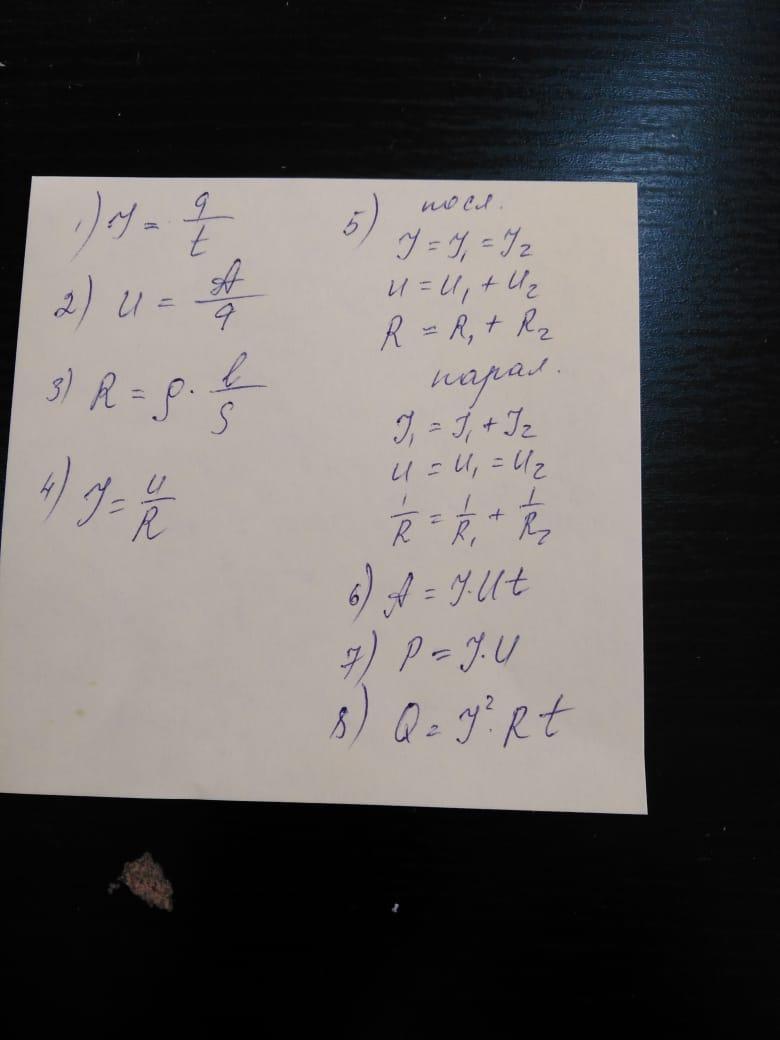 1) I = q/t
2) U = A/q
3) R = ρ · l/S
4) I = U/R
5) посл.
I = I₁ = I₂
U = U₁ + U₂
R = R₁ + R₂
парал.
I₁ = I₁ + I₂
U = U₁ = U₂
1/R = 1/R₁ + 1/R₂
6) A = I · U t
7) P = I · U
8) Q = I² · R t